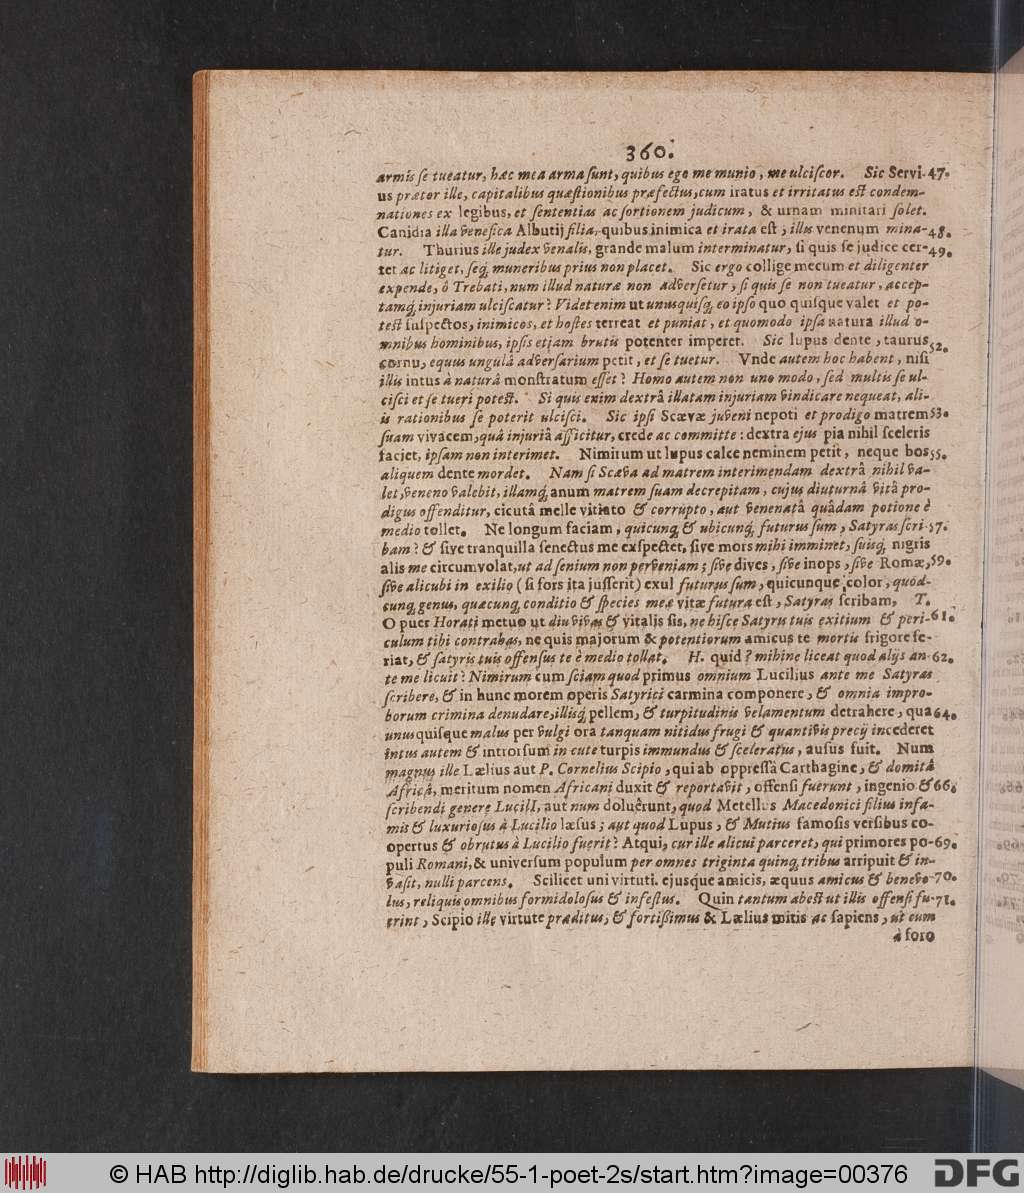 360.
armis se tueatur, hæc mea arma sunt, quibus ego me munio, me ulciscor. Sic Servi- 47.
us prætor ille, capitalibus quæstionibus præfectus, cum iratus et irritatus est condem-
nationes ex legibus, et sententias ac sortionem judicum, & urnam minitari solet.
Canidia illa venefica Albutij filia, quibus inimica et irata est, illis venenum mina- 48.
tur. Thurius ille judex venalis, grande malum interminatur, si quis se judice cer- 49.
tet ac litiget, seq́; muneribus prius non placet. Sic ergo collige mecum et diligenter
expende, ô Trebati, num illud naturæ non adversetur, si quis se non tueatur, accep-
tamq́; injuriam ulciscatur? Videt enim ut unusquisq́; eo ipso quo quisque valet et po-
test suspectos, inimicos, et hostes terreat et puniat, et quomodo ipsa natura illud o-
mnibus hominibus, ipsis etjam brutis potenter imperet. Sic lupus dente, taurus 52.
cornu, equus ungulâ adversarium petit, et se tuetur. Vnde autem hoc habent, nisi
illis intus à naturâ monstratum esset? Homo autem non uno modo, sed multis se ul-
cisci et se tueri potest. Si quis enim dextrâ illatam injuriam vindicare nequeat, ali-
is rationibus se poterit ulcisci. Sic ipsi Scævæ juveni nepoti et prodigo matrem 53.
suam vivacem, quâ injuriâ afficitur, crede ac committe: dextra ejus pia nihil sceleris
faciet, ipsam non interimet. Nimirum ut lupus calce neminem petit, neque bos 55.
aliquem dente mordet. Nam si Scæva ad matrem interimendam dextrâ nihil va-
let, veneno valebit, illamq́; anum matrem suam decrepitam, cujus diuturnâ vitâ pro-
digus offenditur, cicutâ melle vitiato & corrupto, aut venenatâ quâdam potione è
medio tollet. Ne longum faciam, quicunq́; & ubicunq́; futurus sum, Satyras scri- 57.
bam? & sive tranquilla senectus me exspectet, sive mors mihi imminet, suisq́; nigris
alis me circumvolat, ut ad senium non perveniam; sive dives, sive inops, sive Romæ, 59.
sive alicubi in exilio (si fors ita jusserit) exul futurus sum, quicunque color, quod-
cunq́; genus, quæcunq́; conditio & species meæ vitæ futura est, Satyras scribam. T.
O puer Horati metuo ut diu vivas & vitalis sis, ne hisce Satyris tuis exitium & peri- 61.
culum tibi contrahas, ne quis majorum & potentiorum amicus te mortis frigore fe-
riat, & satyris tuis offensus te è medio tollat. H. quid? mihine liceat quod alijs an- 62.
te me licuit? Nimirum cum sciam quod primus omnium Lucilius ante me Satyras
scribere, & in hunc morem operis Satyrici carmina componere, & omnia impro-
borum crimina denudare, illisq́; pellem, & turpitudinis velamentum detrahere, qua 64.
unusquisque malus per vulgi ora tanquam nitidus frugi & quantivis precij incederet
intus autem & introrsum in cute turpis immundus & sceleratus, ausus fuit. Num
magnus ille Lælius aut P. Cornelius Scipio, qui ab oppressâ Carthagine, & domitâ
Africâ, meritum nomen Africani duxit & reportavit, offensi fuerunt, ingenio & 66.
scribendi genere LucilI, aut num doluêrunt, quod Metellus Macedonici filius infa-
mis & luxuriosus à Lucilio læsus; aut quod Lupus, & Mutius famosis versibus co-
opertus & obrutus à Lucilio fuerit? Atqui, cur ille alicui parceret, qui primores po- 69.
puli Romani, & universum populum per omnes triginta quinq́; tribus arripuit & in-
vasit, nulli parcens. Scilicet uni virtuti. ejusque amicis, æquus amicus & benevo- 70.
lus, reliquis omnibus formidolosus & infestus. Quin tantum abest ut illis offensi fu- 71.
erint, Scipio ille virtute præditus, & fortißimus & Lælius mitis ac sapiens, ut cum
à foro
© HAB http://diglib.hab.de/drucke/55-1-poet-2s/start.htm?image=00376
DFG